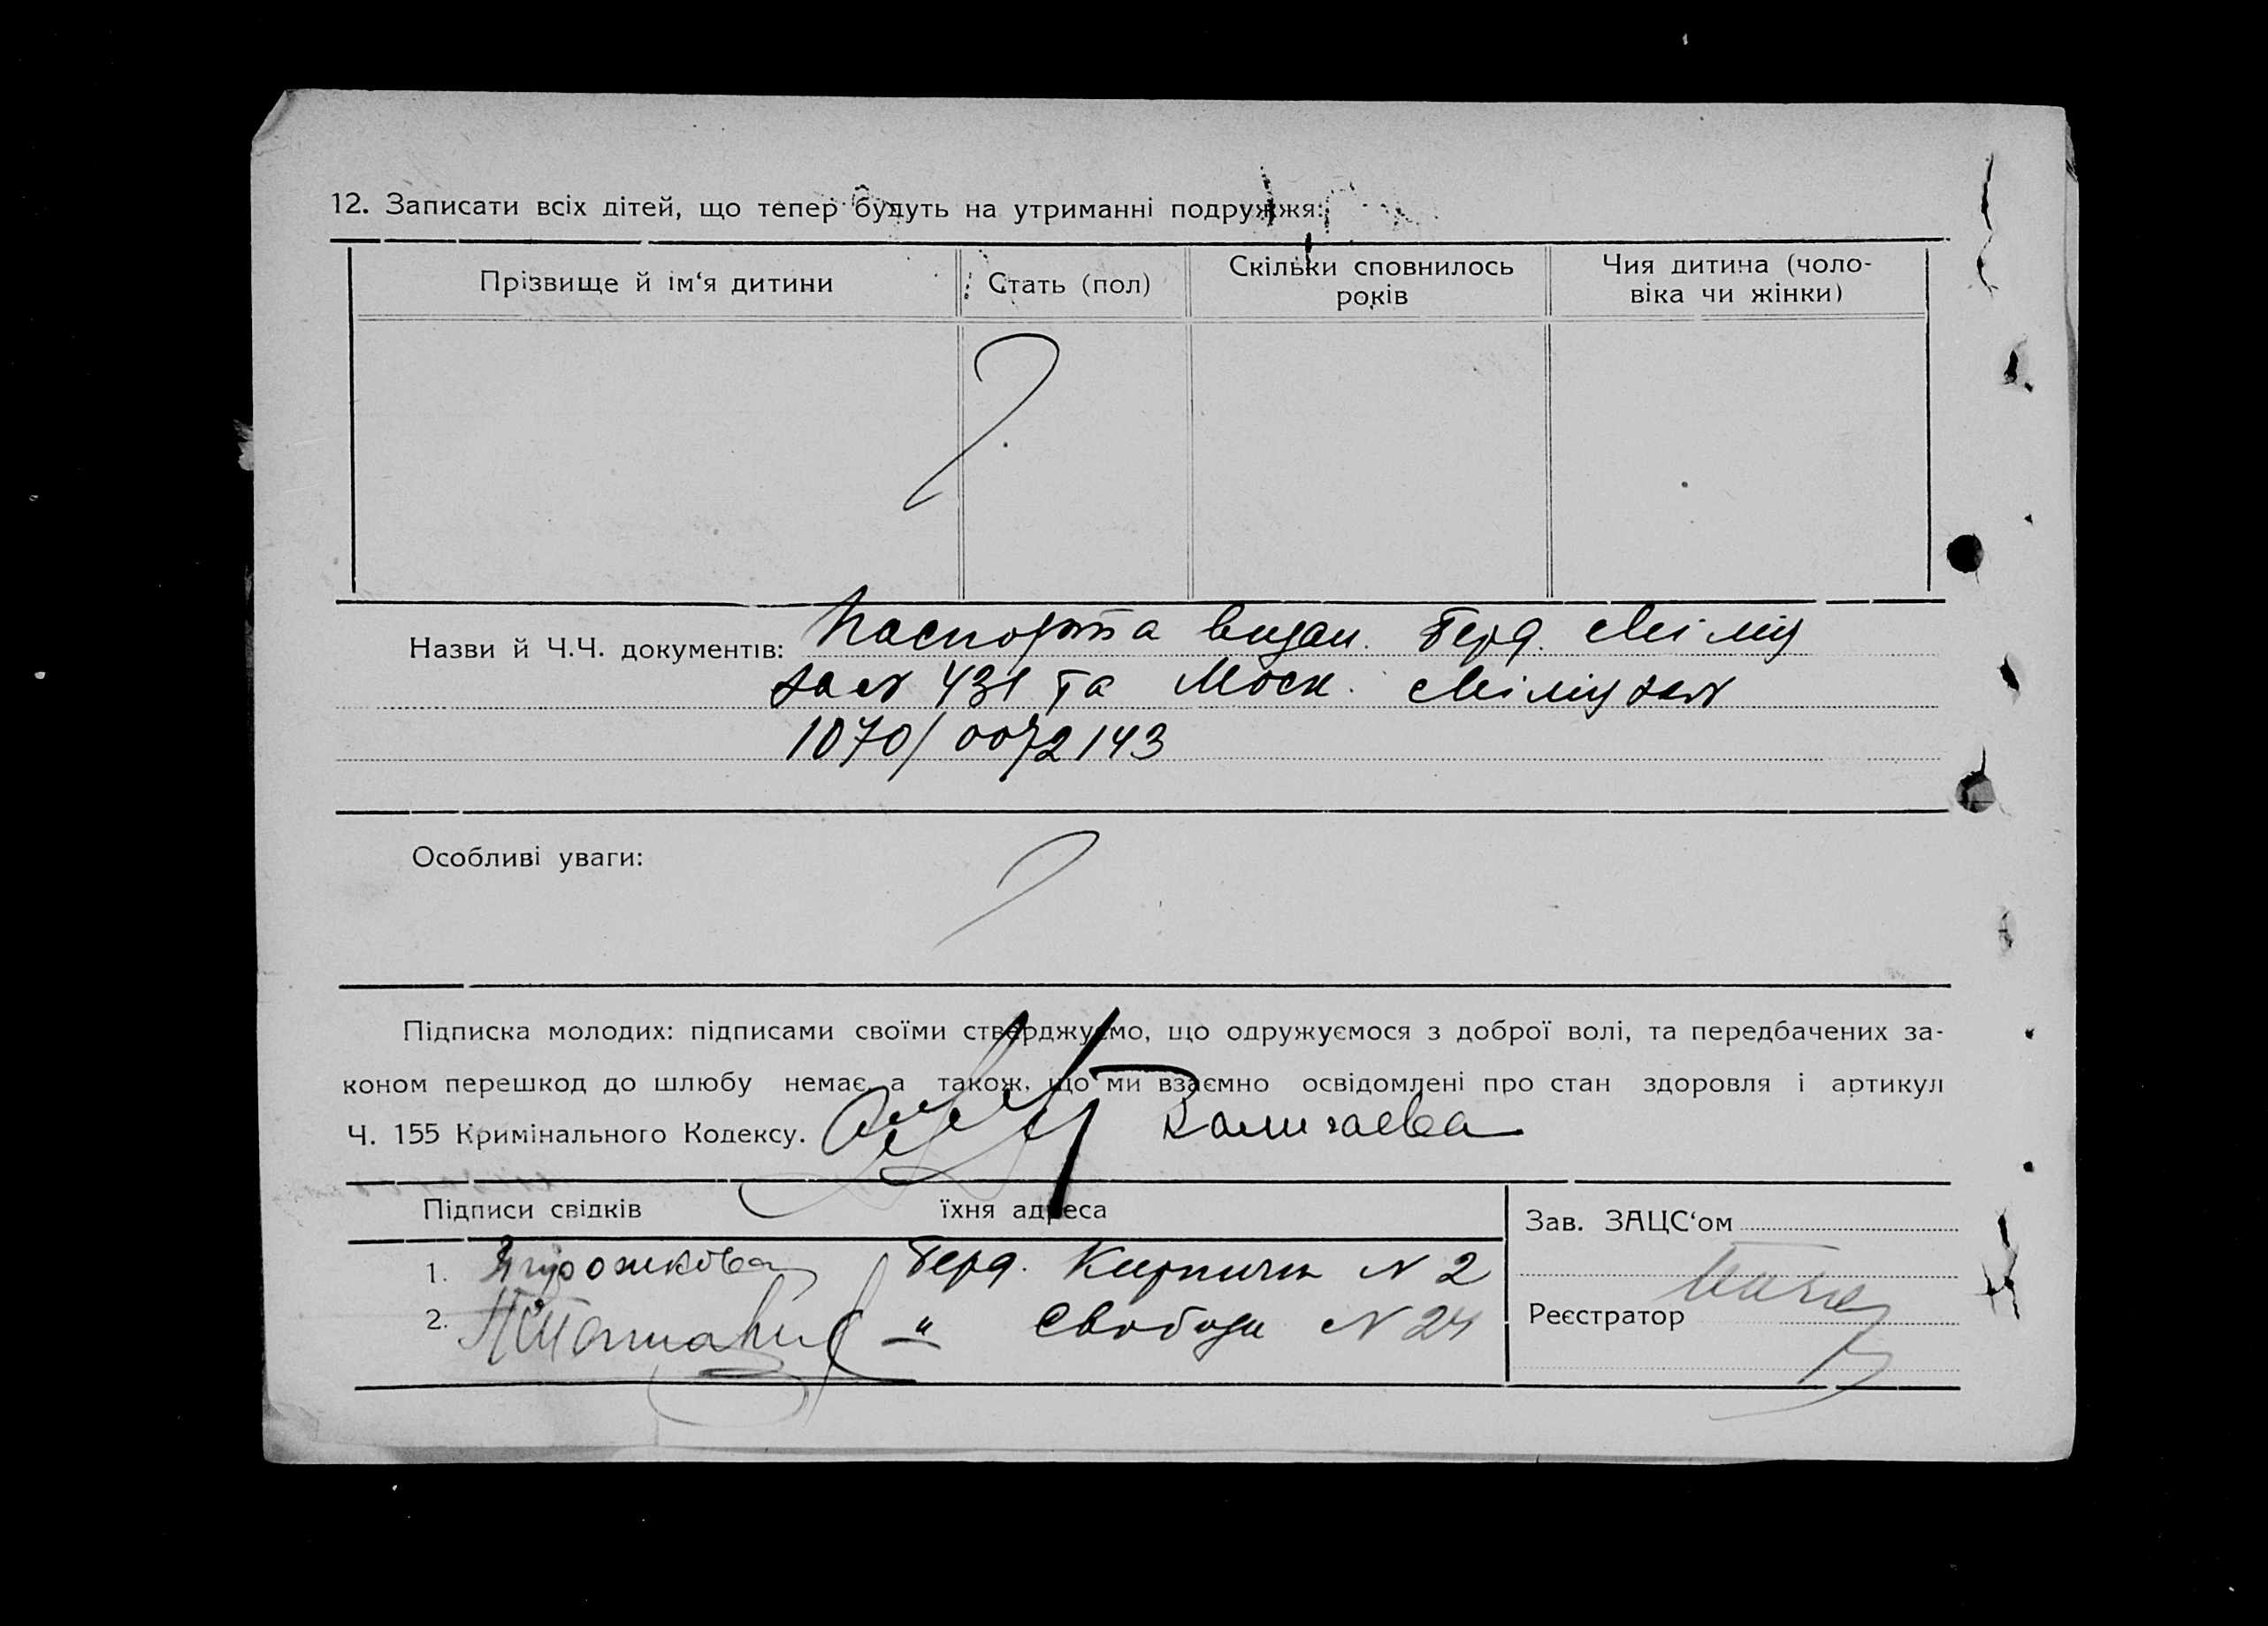 12. Записати всіх дітей, що тепер будуть на утриманні подружжя:
Прізвище й ім‘я дитини
Стать (пол)
Скільки сповнилось
років
Чия дитина (чоло-
віка чи жінки)
Назви й Ч.Ч. документів: Паспорта видан. Берд. Міліц
за № 431 та Моск. Міліц за №
1070/0072143
Особливі уваги:
Підписка молодих: підписами своїми стверджуємо, що одружуємося з доброї волі, та передбачених за-
коном перешкод до шлюбу немає, а також, що ми взаємно освідомлені про стан здоровля і артикул
Ч. 155 Кримінального Кодексу.
Підписи свідків їхня адреса
Зав. ЗАЦС‘ом
1. Берд. Кирпичн № 2
2. " Свободи № 24
Реєстратор